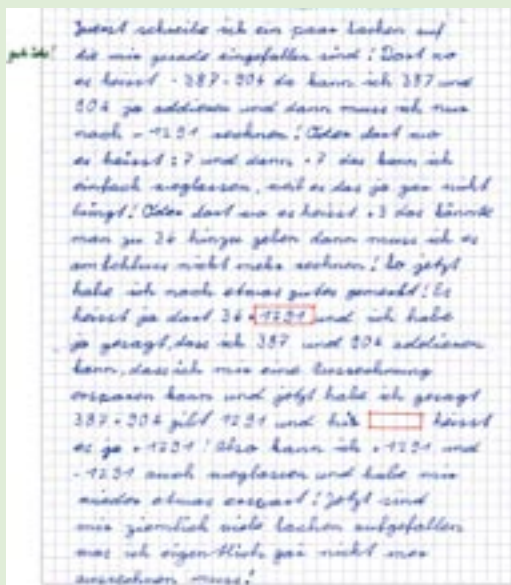 Zuerst schreibe ich ein paar Sachen auf
gute Idee!
die mir gerade eingefallen sind! Dort wo
es heisst - 387 - 904 da kann ich 387 und
904 ja addieren und dann muss ich nur
noch - 1291 rechnen! Oder dort wo
es heisst : 7 und dann · 7 das kann ich
einfach weglassen, weil es das ja gar nicht
bringt! Oder dort wo es heisst + 3 das könnte
man zu 36 hinzu geben dann muss ich es
am Schluss nicht mehr rechnen! So jetzt
habe ich noch etwas gutes gemerkt! Es
heisst ja dort 36 + 1291 und ich habe
ja gesagt, dass ich 387 und 904 addieren
kann, dass ich mir eine Ausrechnung
ersparen kann und jetzt habe ich gesagt
387 + 904 gibt 1291 und heisst
es ja + 1291! Also kann ich + 1291 und
- 1291 auch weglassen und habe mir
wieder etwas erspart! Jetzt sind
mir ziemlich viele Sachen aufgefallen
was ich eigentlich gar nicht mer
ausrechnen muss!